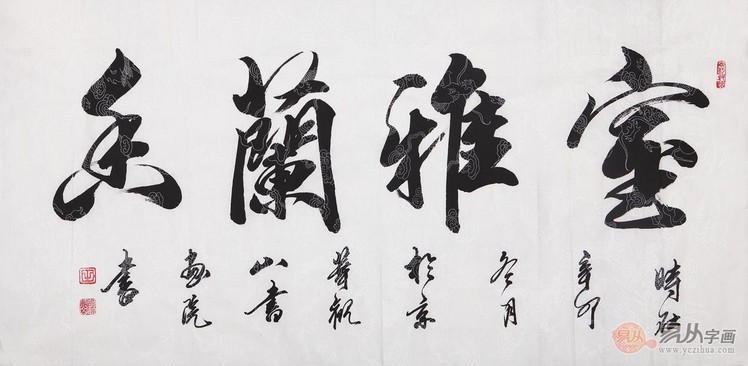 室雅蘭香
時在
辛卯
冬月
於京
華觀
山書
画院
書
易从字画
www.yczihua.com